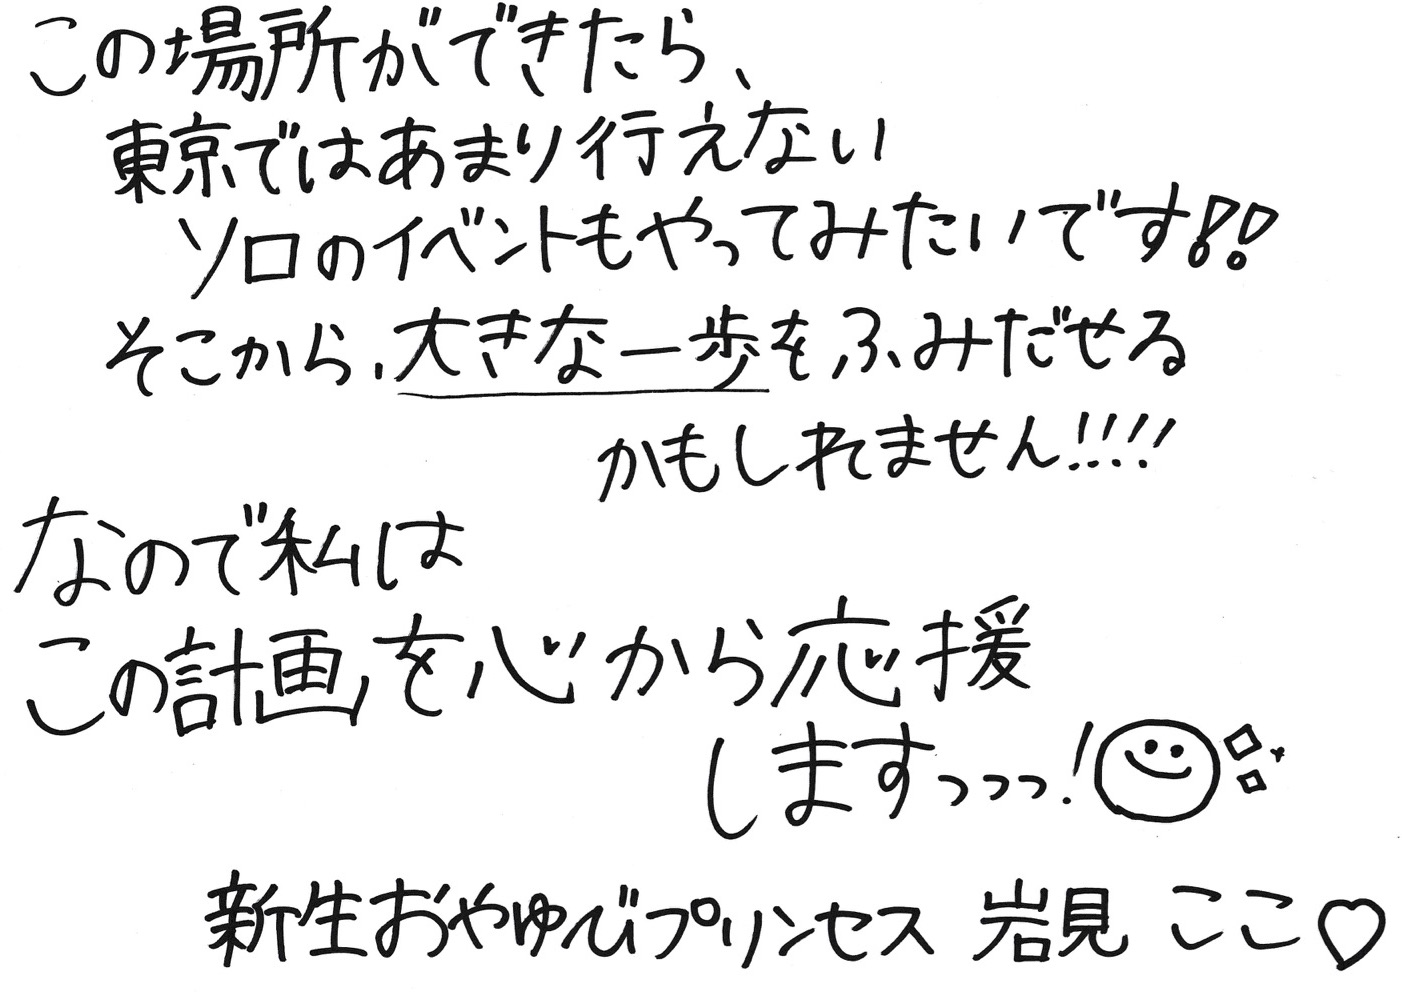 この場所ができたら、
東京ではあまり行えない
ソロのイベントもやってみたいです!!
そこから、大きな一歩をふみだせる
かもしれません!!!!
なので私は
この計画を心から応援
しますっっっ!
新生おやゆびプリンセス 岩見 ここ♡